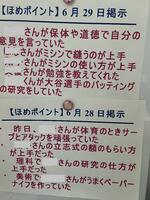 【ほめポイント】6月29日掲示
さんが保体や道徳で自分の
意見を言っていた
んがミシンで縫うのが上手
さんがミシンの使い方が上手
さんが勉強を教えてくれた
くんが大谷選手のバッティング
の研究をしていた
【ほめポイント】6月28日掲示
昨日、さんが体育のときサー
ブとアタックを頑張っていた
さんの立志式の額のもらい方
が上手だった
理科でさんの研究の仕方が
上手だった
美術でさんがうまくペーパー
ナイフを作っていた